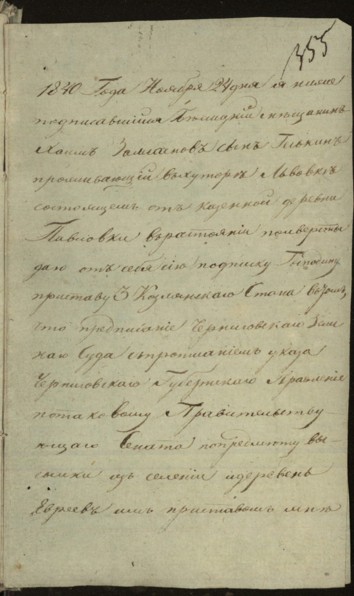 355
1840 Года Ноября 24 дня я ниже
подписавшийся мещанинъ
Хаимъ Залмановъ сынъ
проживающій въ хуторѣ Львовкѣ
состоящемъ отъ казенной деревни
Павловки въ растояніи полверсты
даю отъ себя сію подписку Господину
приставу 3 Стана въ томъ,
что предписаніе Черниговскаго Зем
каго Суда съ прописаніемъ указа
Черниговскаго Губернскаго Правленія
потаковому Правительству-
ющаго Сената попредмѣту вы-
сылки изъ селеній и деревень
Евреевъ имъ приставомъ мнѣ